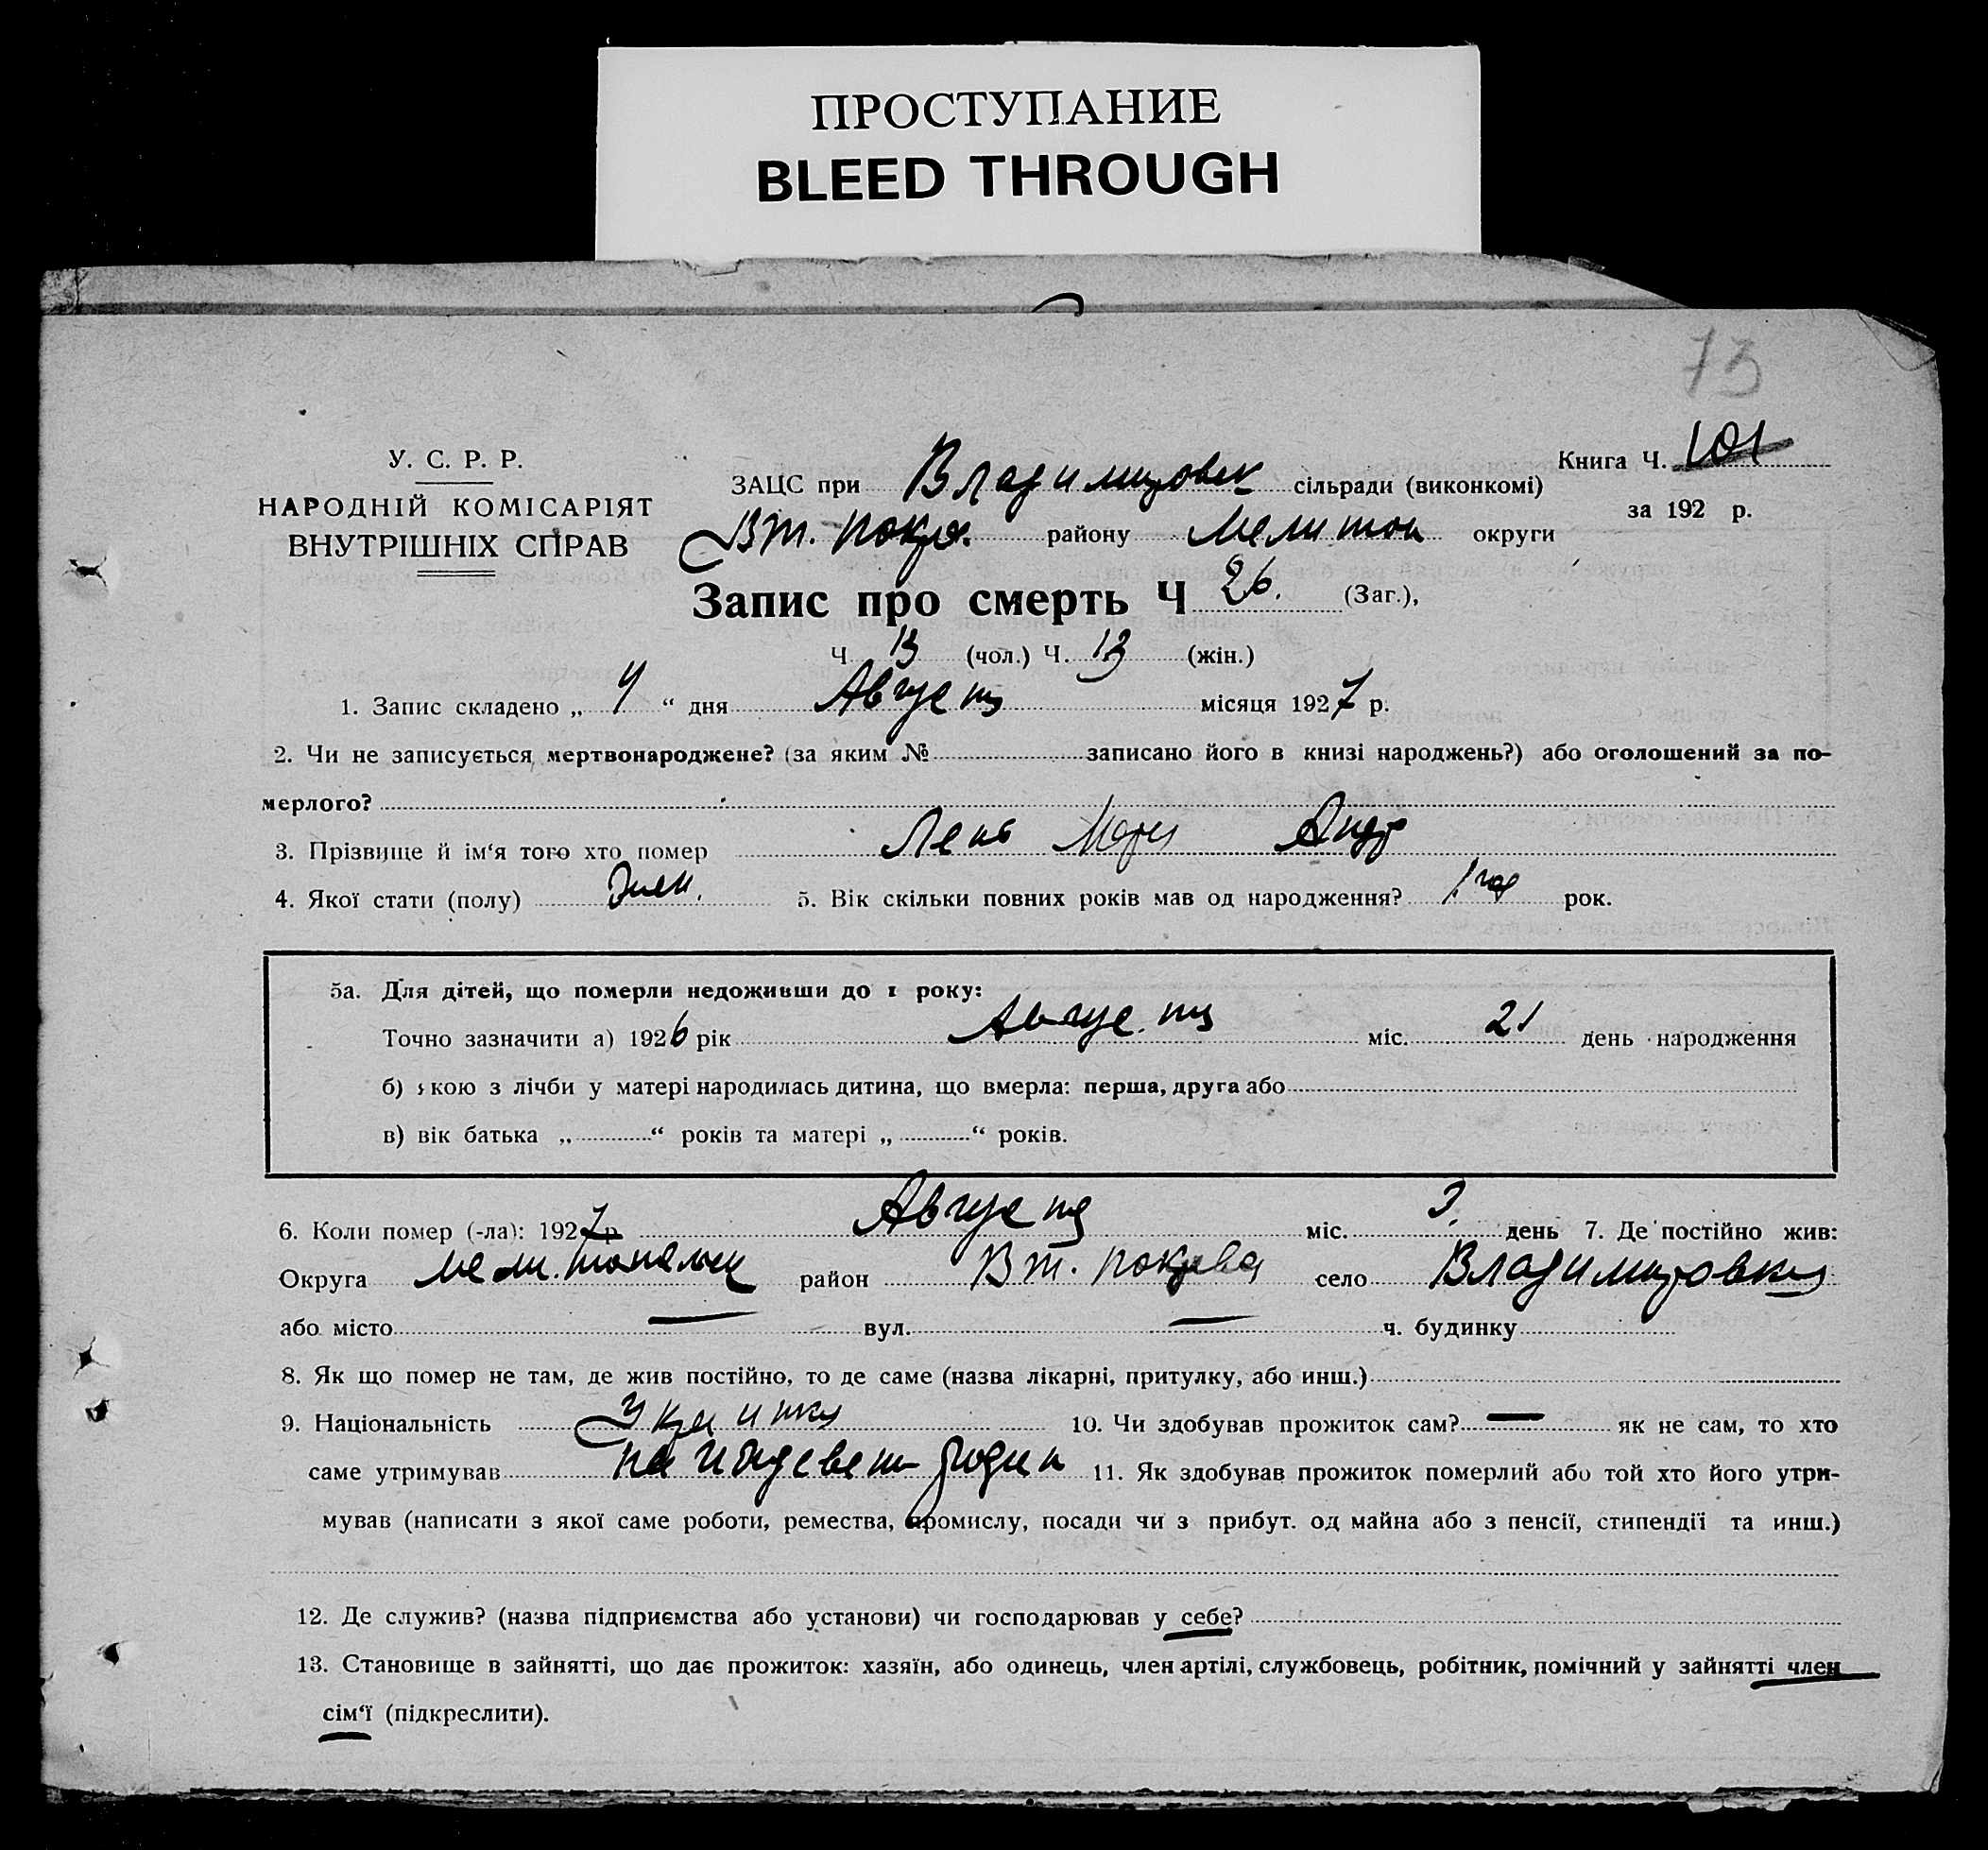 ПРОСТУПАНИЕ
BLEED THROUGH
73
У. С. Р. Р.
НАРОДНІЙ КОМІСАРІЯТ
ВНУТРІШНІХ СПРАВ
Книга Ч. 101
за 192 р.
ЗАЦС при Владимировск сільради (виконкомі)
Вт. Покр. району Мелитоп округи
Запис про смерть Ч 26. (Заг.),
Ч 13 (чол.) Ч. 13 (жін.)
1. Запис складено „ 4 “ дня Августа місяця 1927 р.
2. Чи не записується мертвонароджене? (за яким № записано його в книзі народжень?) або оголошений за по-
мерлого?
3. Прізвище й ім‘я того хто помер Андр
4. Якої стати (полу) жен. 5. Вік скільки повних років мав од народження? 1 год рок.
5а. Для дітей, що померли недоживши до 1 року:
Точно зазначити а) 1926 рік Августа міс. 21 день народження
б) якою з лічби у матері народилась дитина, що вмерла: перша, друга або
в) вік батька „ “ років та матері „ “ років.
6. Коли помер (-ла): 1927 р Августа міс. 3. день 7. Де постійно жив:
Округа Мелитопольск район Вт. Покрова село Владимировка
або місто — вул. — ч. будинку
8. Як що помер не там, де жив постійно, то де саме (назва лікарні, притулку, або инш.)
9. Національність Украинка 10. Чи здобував прожиток сам? — як не сам, то хто
саме утримував на 11. Як здобував прожиток померлий або той хто його утри-
мував (написати з якої саме роботи, ремества, промислу, посади чи з прибут. од майна або з пенсії, стипендії та инш.)
12. Де служив? (назва підприємства або установи) чи господарював у себе?
13. Становище в зайнятті, що дає прожиток: хазяїн, або одинець, член артілі, службовець, робітник, помічний у зайнятті член
сім‘ї (підкреслити).